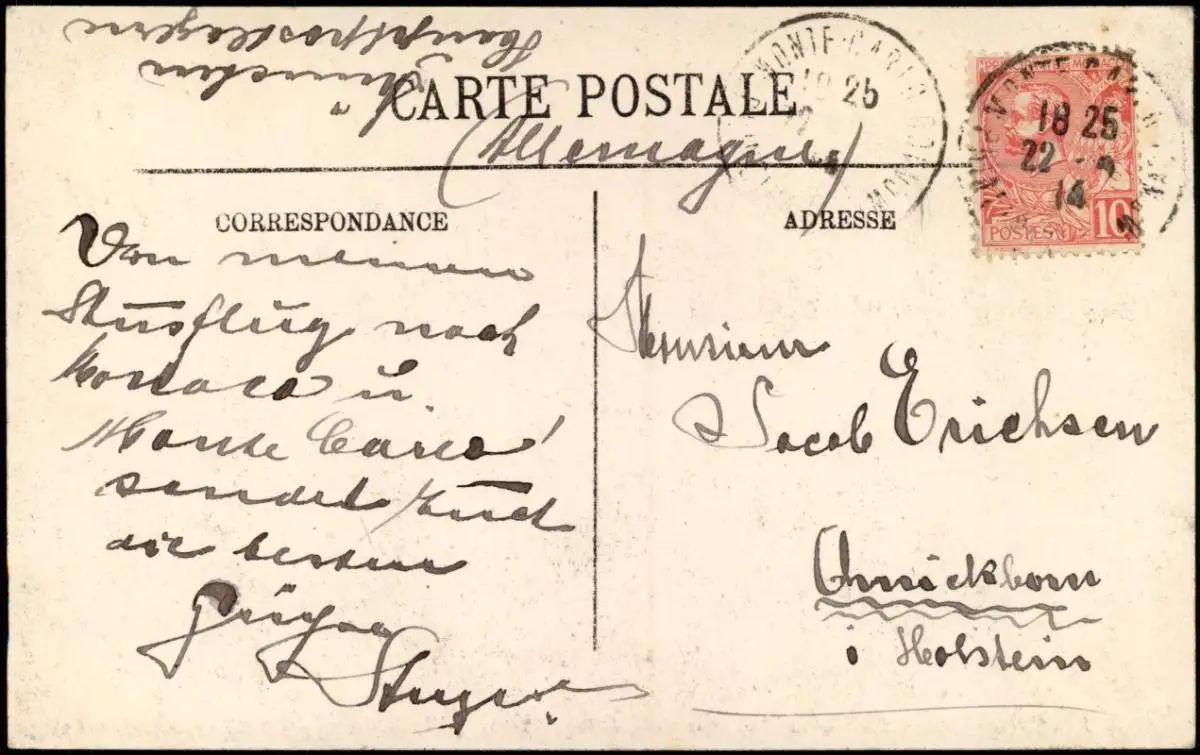 Hauptpostlagernd
München
CARTE POSTALE
(Allemagne)
MONTE-CARLO
18 25
MONTE-CARLO
18 25
22 - 
14
POSTES 10
CORRESPONDANCE
ADRESSE
Von meinem
Ausflug nach
Monaco u.
Monte Carlo
sendet Euch
die besten
Grüsse
Monsieur
Jacob Erichsen
Quickborn
i Holstein